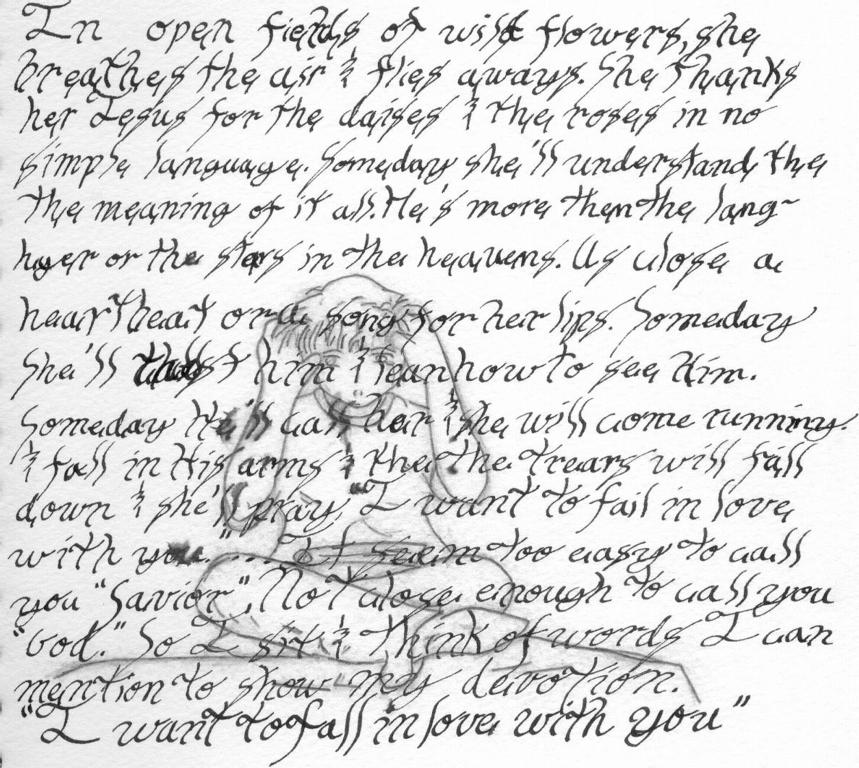 In open fields of wild flowers, she
breathes the air & flies aways. She thanks
her Jesus for the daises & the roses in no
simple language. Someday she'll understand the
the meaning of it all. He's more then the lang-
hger or the stars in the heavens. As close a
heartbeat or a song for her lips. Someday
She'll trust him & lean how to see Him.
Someday He'll call her & she will come running.
& fall in His arms & the the trears will fall
down & she'll pray, "I want to fall in love
with you." .... It seem too easy to call
you "Savior", Not close enough to call you
"God." So I sit & think of words I can
mention to show my devotion.
"I want to fall in love with you"